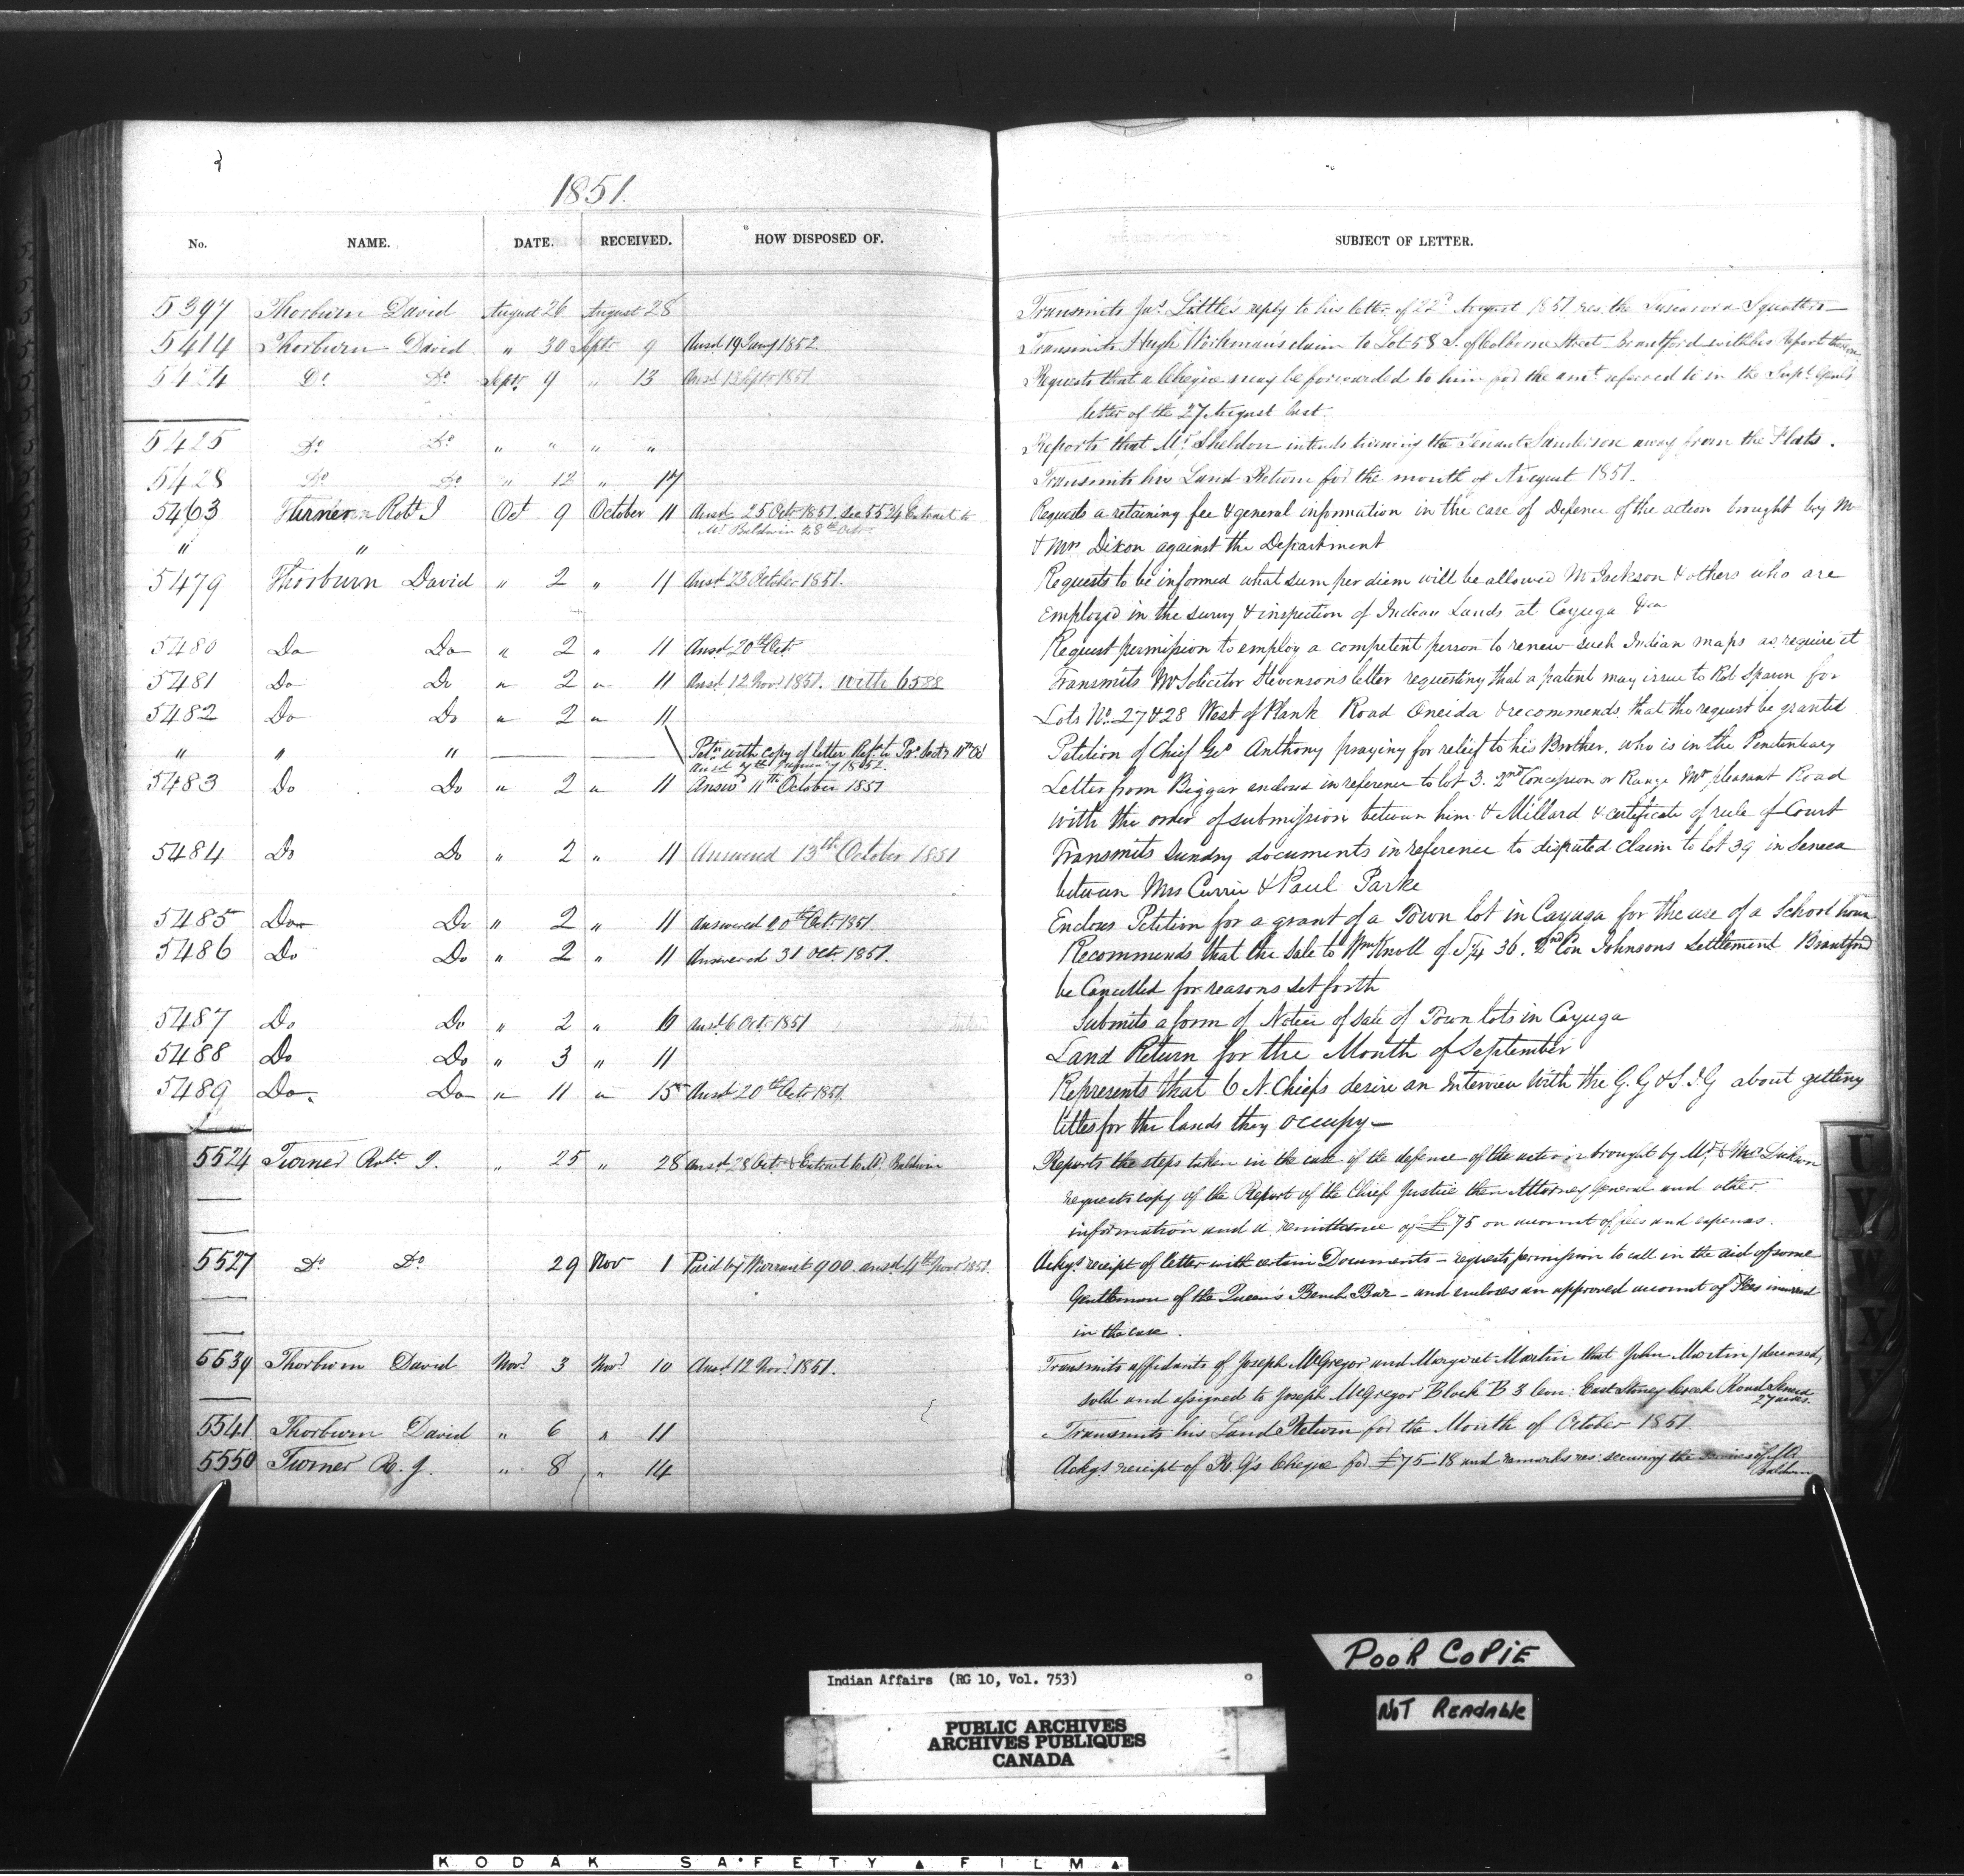 1851.
No. NAME. DATE. RECEIVED. HOW DISPOSED OF. SUBJECT OF LETTER.
5397 Thorburn David August 26 August 28 Transmits Jas. Little's reply to his letter of 22d August 1851 res. the Tuscarora Squatters
5414 Thorburn David " 30 Septr 9 Ansd 19 Jany 1852. Transmits Hugh Workman's claim to Lot 58 S. of Colborne Street Brantford with his Report thereon
5424 Do Do Septr 9 " 13 Ansd 13 Septr 1851 Requests that a Cheque may be forwarded to him for the amt. referred to in the Supt. Genl's
letter of the 27 August last.
5425 Do Do " " " " Reports that Mr. Sheldon intends turning the Tenant Sandison away from the Flats.
5428 Do Do " 12 " 17 Transmits his Land Return for the month of August 1851.
5463 Turner Robt J Oct 9 October 11 Ansd 25 Octr 1851. See 5524 Extract to Requests a retaining fee & general information in the case of Defence of the action brought by Mr
Mr. Baldwin 28th Octr
" " & Mrs Dixon against the Department
5479 Thorburn David " 2 " 11 Ansd 23 October 1851. Requests to be informed what sum per diem will be allowed Mr Jackson & others who are
Employed in the survey & inspection of Indian Lands at Cayuga &ca
5480 Do Do " 2 " 11 Ansd 20th Octr Request permission to employ a competent person to renew such Indian maps as require it
5481 Do Do " 2 " 11 Ansd 12 Novr 1851. with 6588 Transmits Mr Solicitor Stevensons letter requesting that a patent may issue to Rob Spawn for
5482 Do Do " 2 " 11 Lots No. 27 & 28 West of Plank Road Oneida & recommends that the request be granted
" " " Petn with copy of letter Refd to Petition of Chief Geo Anthony praying for relief to his Brother, who is in the Penitentiary
Ansd 7th 1852.
5483 Do Do " 2 " 11 Answd 11th October 1851 Letter from Biggar enclosed in reference to lot 3. 2nd Concession or Range Mt pleasant Road
with the order of submission between him & Millard & certificate of rule of Court
5484 Do Do " 2 " 11 Answered 13th October 1851 Transmits sundry documents in reference to disputed claim to lot 39 in Seneca
between Mrs Currie & Paul Parke
5485 Do Do " 2 " 11 Answered 20th Oct. 1851. Encloses Petition for a grant of a Town lot in Cayuga for the use of a School house
5486 Do Do " 2 " 11 Answered 31 Oct. 1851. Recommends that the sale to Wm Knoll of 36. 2nd Con Johnsons Settlement Brantford
be Cancelled for reasons set forth
5487 Do Do " 2 " 6 Ansd 6 Oct. 1851 Submits a form of Notice of sale of Town lots in Cayuga
5488 Do Do " 3 " 11 Land Return for the Month of September
5489 Do Do " 11 " 15 Ansd 20th Octr 1851. Represents that 6 N. Chiefs desire an Interview with the G. G & S. I G about getting
titles for the lands they occupy—
5524 Turner Robt. J. " 25 " 28 Ansd 28 Octr & Extract to Mr. Baldwin Reports the steps taken in the case of the defence of the action brought by Mr. & Mrs. Dickson
requests copy of the Report of the Chief Justice then Attorney General and other
information and a remittance of £75 on account of fees and expenses.
5527 Do Do 29 Nov 1 Paid by Warrant 900. ansd 4th Novr 1851. Ackgs receipt of letter with certain Documents – requests permission to call in the aid of some
Gentleman of the Queen's Bench Bar – and encloses an approved account of Fees incurred
in the case.
5539 Thorburn David Novr 3 Novr 10 Ansd. 12 Novr 1851. Transmits affidavits of Joseph McGregor and Margaret Martin that John Martin / deceased,
sold and assigned to Joseph McGregor Block B 3 Con: East Stoney Creek Road Seneca
27 acres.
5541 Thorburn David " 6 " 11 Transmits his Land Return for the Month of October 1851.
5550 Turner R. J. " 8 " 14 Ackgs receipt of R. G's Cheque for £75–18 and remarks res: securing the services of Mr.
Baldwin
U
V
W
X
Y
POOR COPIE
NOT READABLE
Indian Affairs (RG 10, Vol. 753)
PUBLIC ARCHIVES
ARCHIVES PUBLIQUES
CANADA
KODAK SAFETY FILM